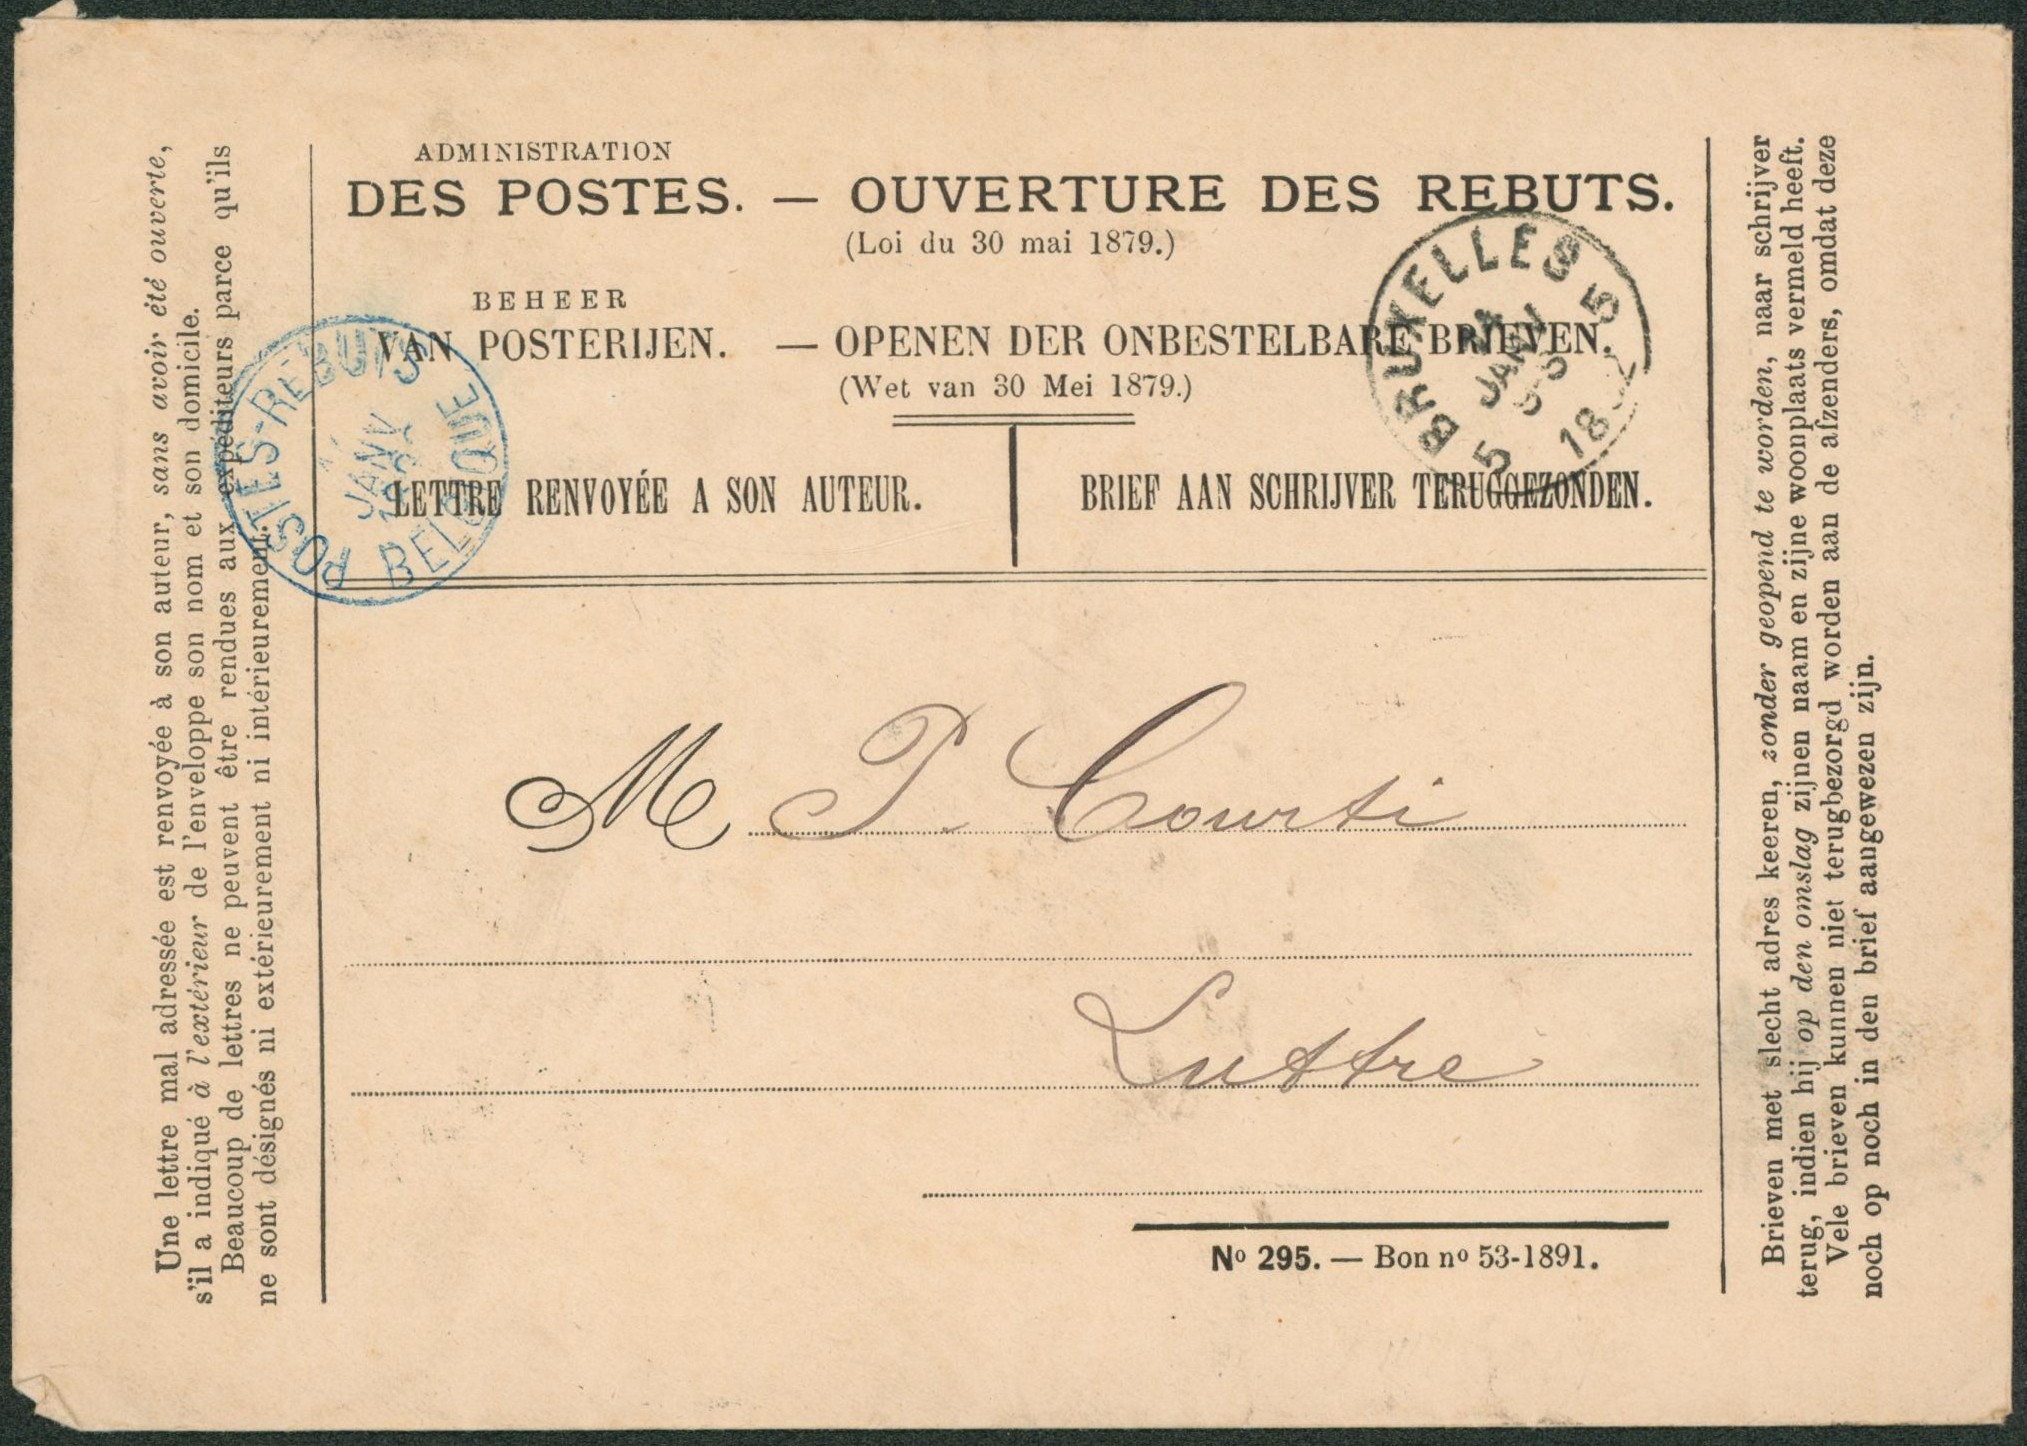 ADMINISTRATION
DES POSTES. — OUVERTURE DES REBUTS.
(Loi du 30 mai 1879.)
BEHEER
VAN POSTERIJEN. — OPENEN DER ONBESTELBARE BRIEVEN.
(Wet van 30 Mei 1879.)
LETTRE RENVOYÉE A SON AUTEUR.
BRIEF AAN SCHRIJVER TERUGGEZONDEN.
POSTES-REBUTS
JANV
BELGIQUE
BRUXELLES 5
JANV
5
18
M P. Courti
Luttre
Nº 295. — Bon nº 53-1891.
Une lettre mal adressée est renvoyée à son auteur, sans avoir été ouverte,
s'il a indiqué à l'extérieur de l'enveloppe son nom et son domicile.
Beaucoup de lettres ne peuvent être rendues aux expéditeurs parce qu'ils
ne sont désignés ni extérieurement ni intérieurement.
Brieven met slecht adres keeren, zonder geopend te worden, naar schrijver
terug, indien hij op den omslag zijnen naam en zijne woonplaats vermeld heeft.
Vele brieven kunnen niet terugbezorgd worden aan de afzenders, omdat deze
noch op noch in den brief aangewezen zijn.